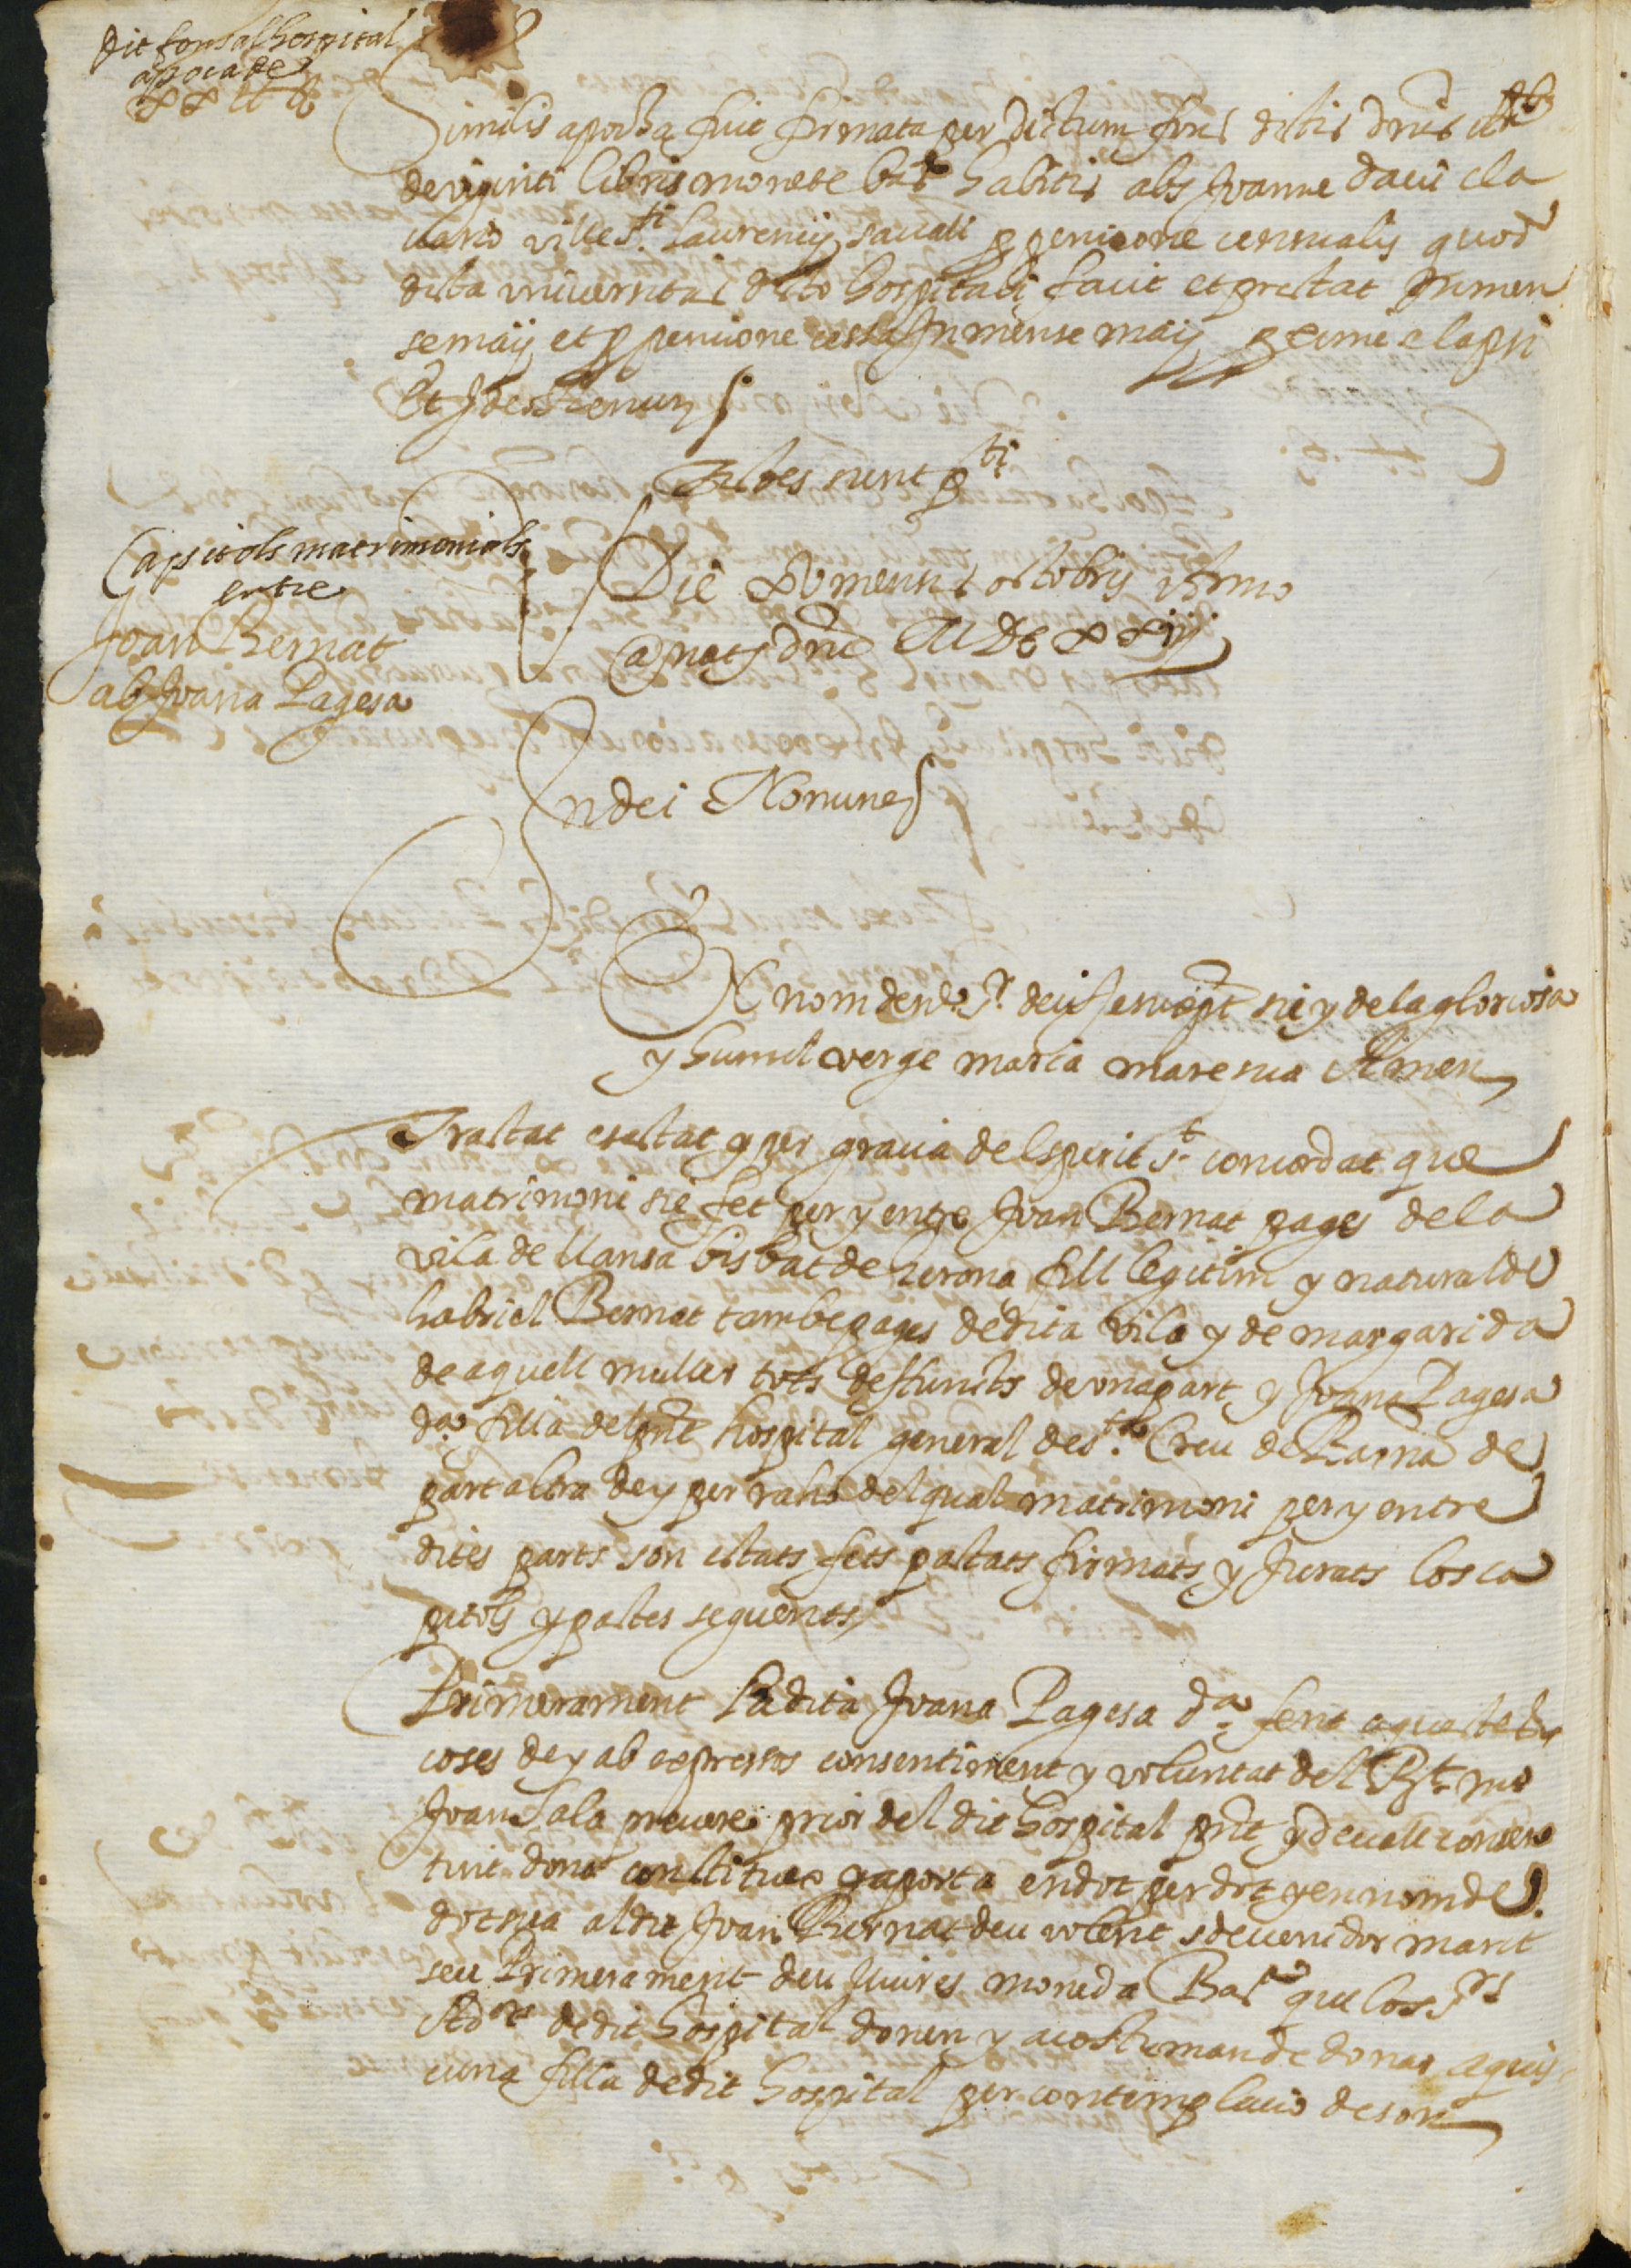 Dit fons al hospital
apoca de
xx ll b
Similis apocha fuit firmata per dictum fons dictis dnis Adb
de viginti libris monete bar habitis abs Joanne daui cla
uario ville S.ti Laurenty sauall p pensione censualis quod
dicta vniuersitas dicto hospitali facit et prestat In men
se maij et p pensione cessa In mense maij proxime elapsi
Et Ideo Renun
Testes sunt p.ti
Capitols matrimonials
entre
Joan Bernat
ab Joana Pagesa
Die xv mensis octobris
a nat dni M D C x x iij
In dei Nomine
EN nom de n.e S.r deu Jesucrist sie y de la gloriosa
y humil verge maria mare sua Amen
Tractat estat y per gracia del sperit S.t concordat que
matrimoni sie fet per y entre Joan Bernat pages de la
vila de llansa bisbat de Gerona fill legitim y natural de
Gabriel Bernat tambe pages de dita vila y de margarida
de aquell muller tots defuncts de vna part, y Joana Pagesa
d.a filla del pnt hospital general de s.ta Creu de Barna de
part altra de y per raho del qual matrimoni per y entre
dites parts son estats fets pactats firmats y Jurats los ca
pitols y pactes seguents
Primerament La dita Joana Pagesa d.a fent aquestes
coses de y ab expressos consentiment y voluntat del R.t mo
Joan Sala preuere prior del dit hospital pnt y deuall consen
tint dona constitueix y aporta en dot per dot y en nom de
dot sua al dit Joan Bernat deu volent sdeuenidor marit
seu Primerament deu lliures moneda Bar.a que los S.rs
Ad.rs de dit hospital donen y acostuman de donar a quis
cuna filla de dit hospital per contemplacio de son